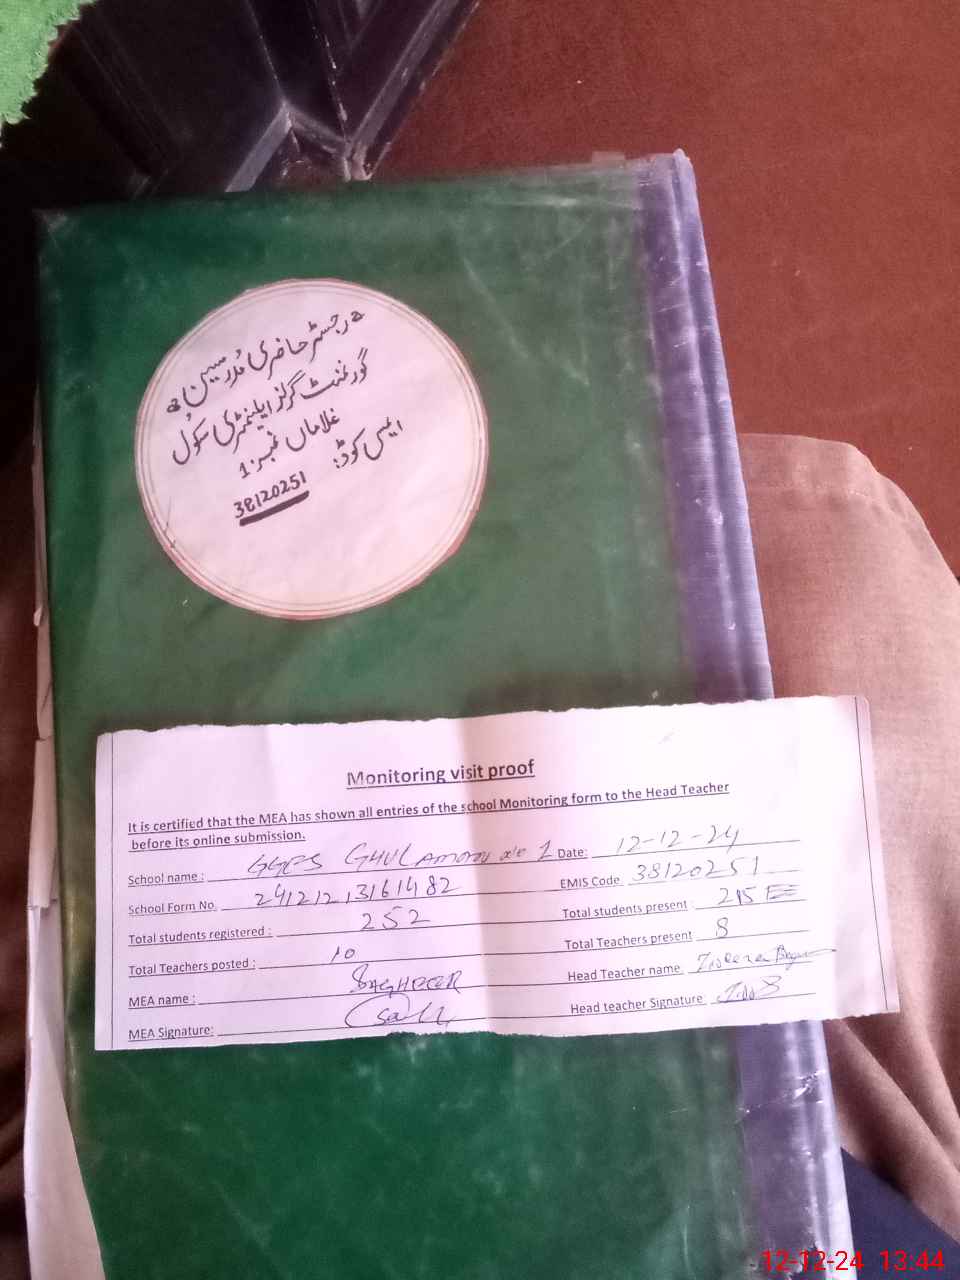 رجسٹر حاضری مدرسین
گورنمنٹ گرلز ایلیمنٹری سکول
غلاماں نمبر 1
ایمس کوڈ:
38120251
Monitoring visit proof
It is certified that the MEA has shown all entries of the school Monitoring form to the Head Teacher
before its online submission.
School name : GGES GHULAMAN 1 Date: 12-12-24
School Form No. 24121213161482 EMIS Code 38120251
Total students registered : 252 Total students present : 215
Total Teachers posted : 10 Total Teachers present 8
MEA name : SAGHEER Head Teacher name Begum
MEA Signature: Head teacher Signature
12-12-24 13:44